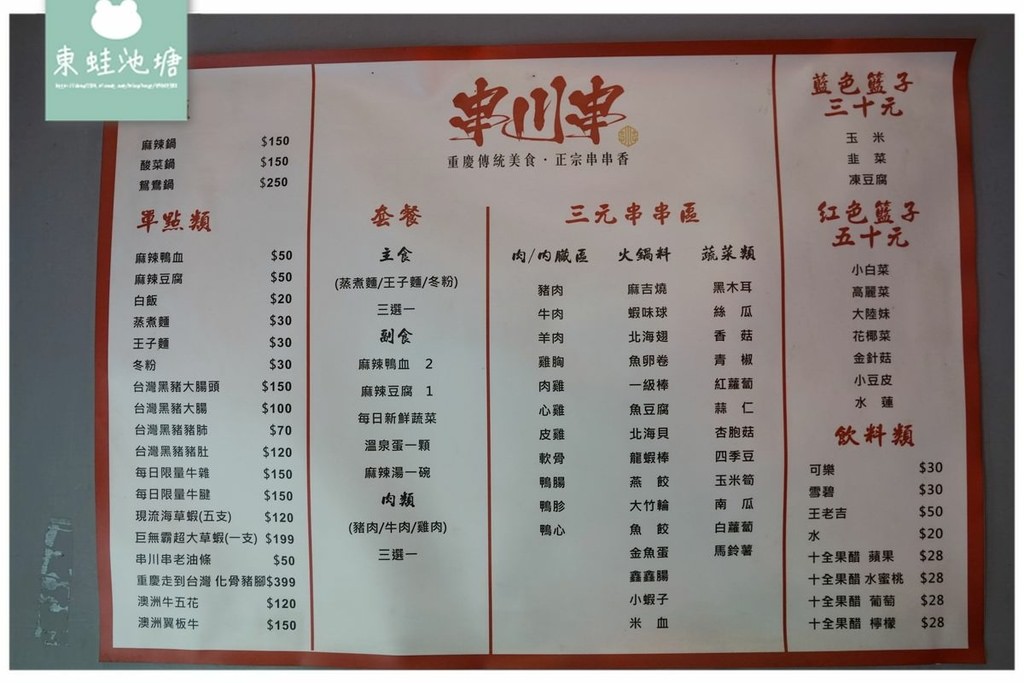 東蛙池塘
麻辣鍋 $150
酸菜鍋 $150
鴛鴦鍋 $250
單點類
麻辣鴨血 $50
麻辣豆腐 $50
白飯 $20
蒸煮麵 $30
王子麵 $30
冬粉 $30
台灣黑豬大腸頭 $150
台灣黑豬大腸 $100
台灣黑豬豬肺 $70
台灣黑豬豬肚 $120
每日限量牛雜 $150
每日限量牛腱 $150
現流海草蝦(五支) $120
巨無霸超大草蝦(一支) $199
串川串老油條 $50
重慶走到台灣 化骨豬腳$399
澳洲牛五花 $120
澳洲翼板牛 $150
串川串
重慶傳統美食·正宗串串香
套餐
主食
(蒸煮麵/王子麵/冬粉)
三選一
副食
麻辣鴨血 2
麻辣豆腐 1
每日新鮮蔬菜
溫泉蛋一顆
麻辣湯一碗
肉類
(豬肉/牛肉/雞肉)
三選一
三元串串區
肉/內臟區
豬肉
牛肉
羊肉
雞胸
肉雞
心雞
皮雞
軟骨
鴨腸
鴨胗
鴨心
火鍋料
麻吉燒
蝦味球
北海翅
魚卵卷
一級棒
魚豆腐
北海貝
龍蝦棒
燕 餃
大竹輪
魚 餃
金魚蛋
鑫鑫腸
小蝦子
米 血
蔬菜類
黑木耳
絲 瓜
香 菇
青 椒
紅蘿蔔
蒜 仁
杏胞菇
四季豆
玉米筍
南 瓜
白蘿蔔
馬鈴薯
藍色籃子
三十元
玉 米
韭 菜
凍豆腐
紅色籃子
五十元
小白菜
高麗菜
大陸妹
花椰菜
金針菇
小豆皮
水 蓮
飲料類
可樂 $30
雪碧 $30
王老吉 $50
水 $20
十全果醋 蘋果 $28
十全果醋 水蜜桃 $28
十全果醋 葡萄 $28
十全果醋 檸檬 $28